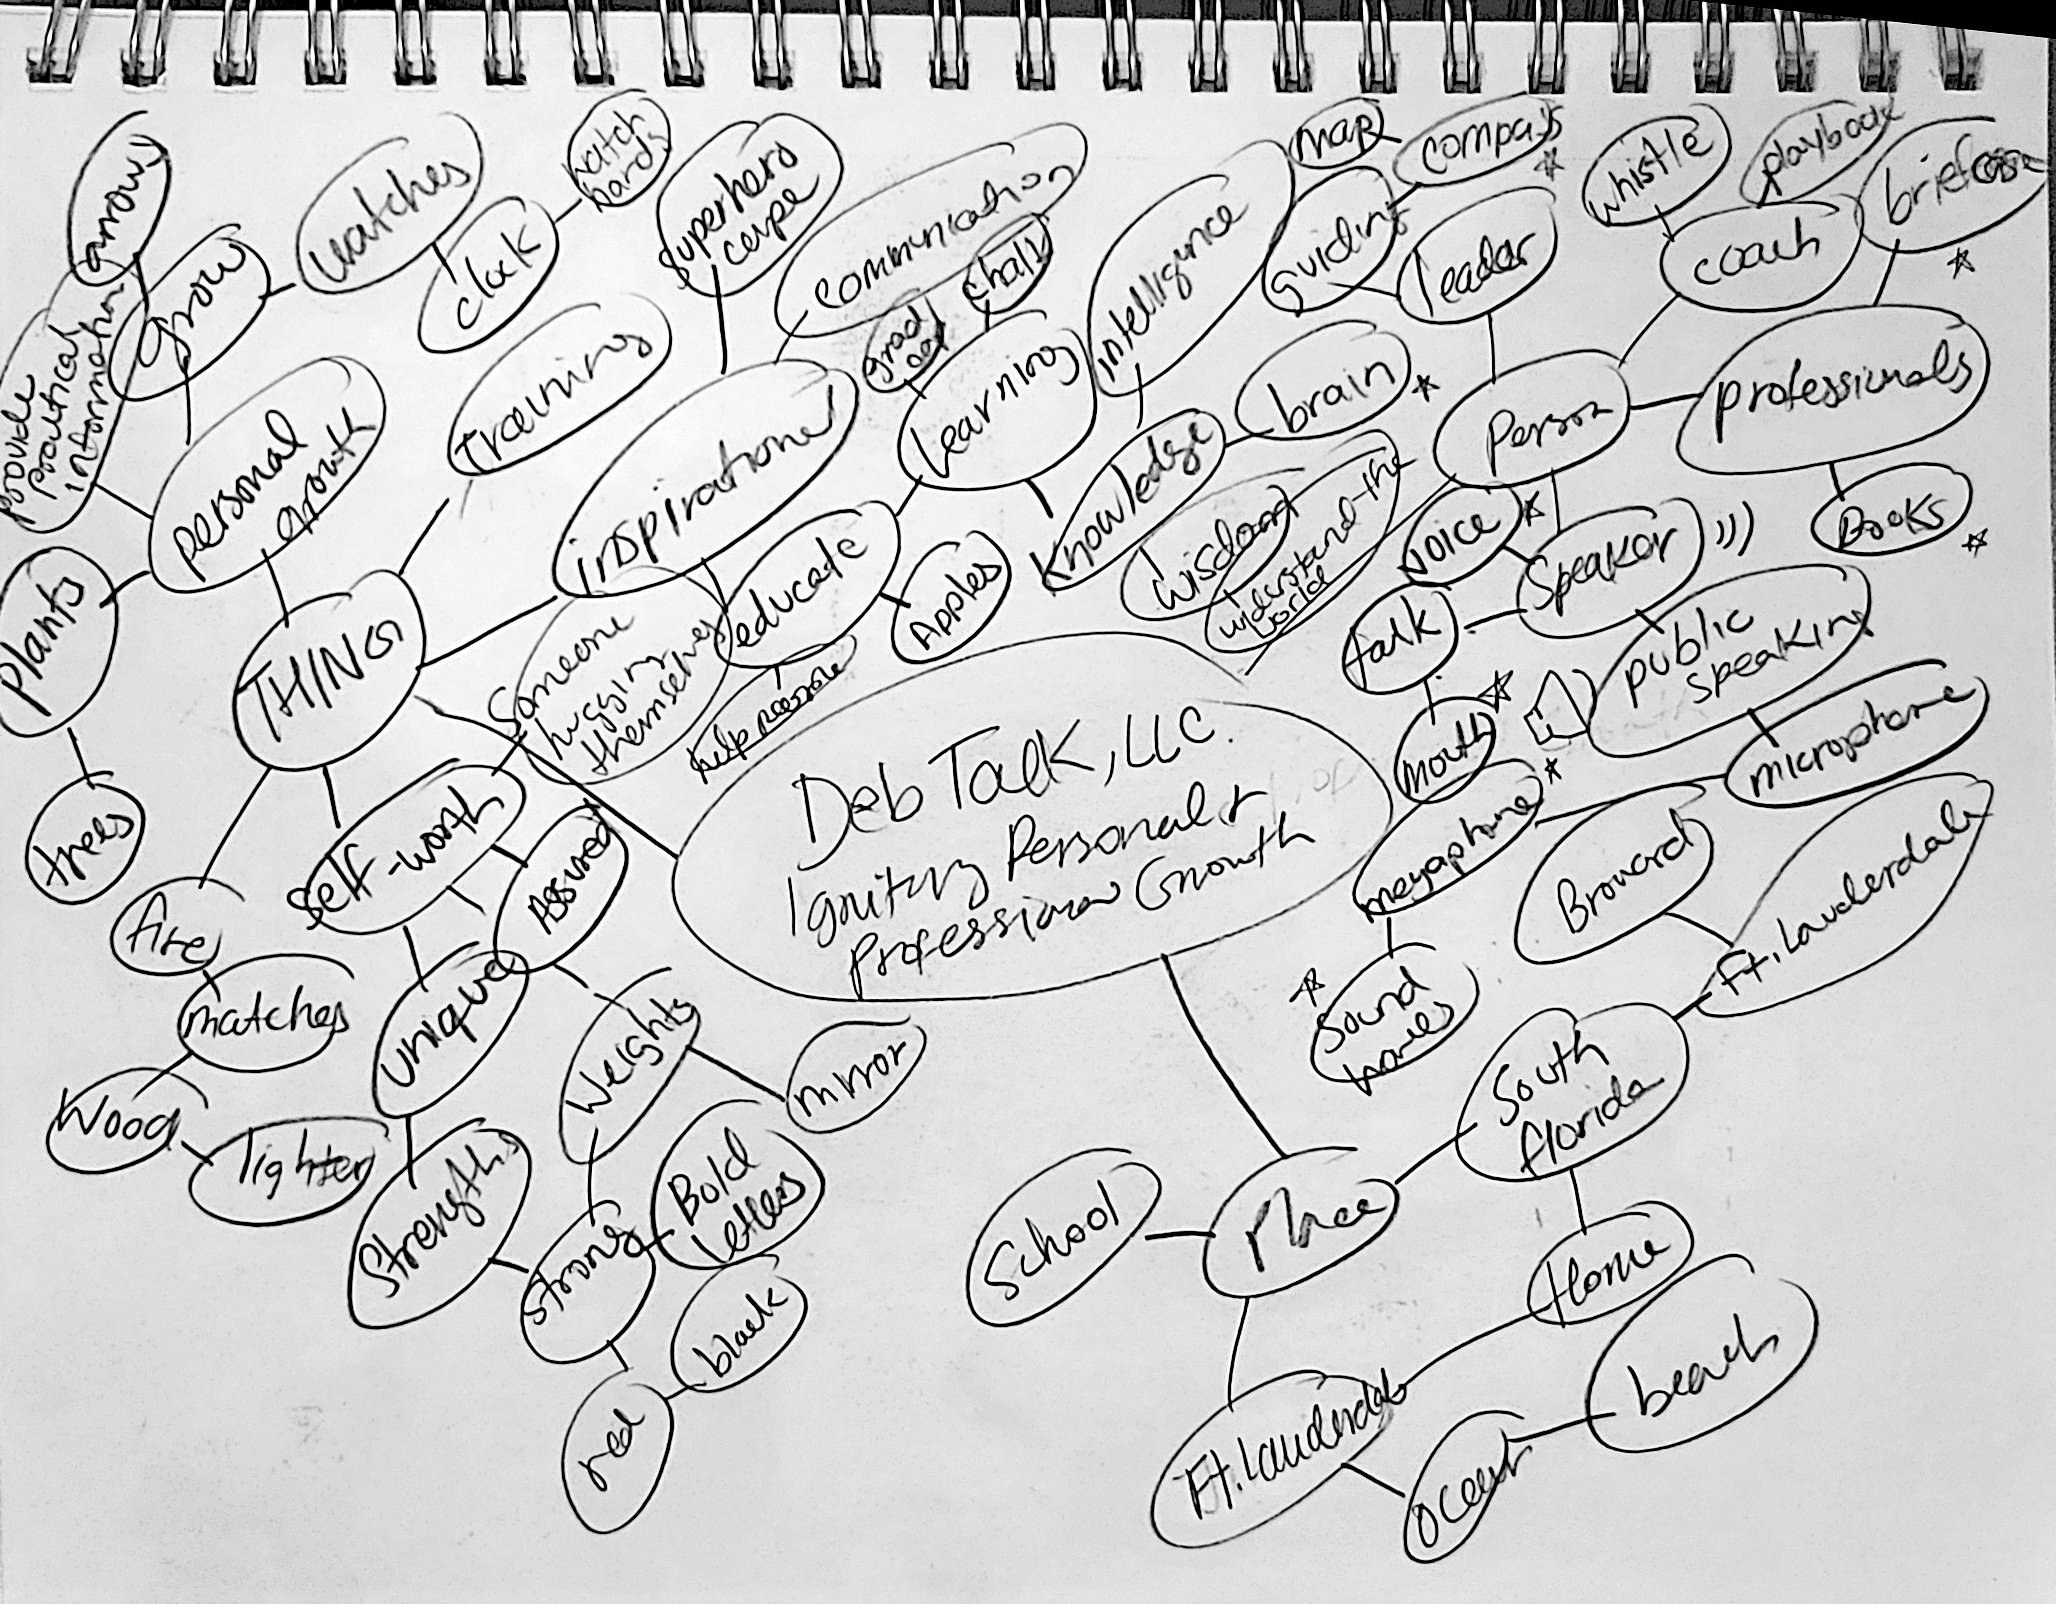 arrows
provide
practical
information
grow
watches
clock
watch
hands
superhero
cape
communication
personal
growth
training
inspirational
grad
chalk
learning
intelligence
map
compass
guiding
leader
whistle
playbook
briefcase
coach
professionals
Person
brain
knowledge
wisdom
understand the
world
Books
voice
speaker
talk
public
speaking
mouth
microphone
megaphone
sound
waves
Broward
Ft. Lauderdale
plants
trees
THINGS
educate
Apples
Someone
hugging
themselves
self-worth
Assured
fire
matches
Wood
lighter
unique
Strengths
Weights
mirror
strong
Bold
Letters
black
red
Deb Talk, LLC.
Igniting Personal &
Professional Growth
School
Place
South
Florida
Home
Ft. Lauderdale
ocean
beach